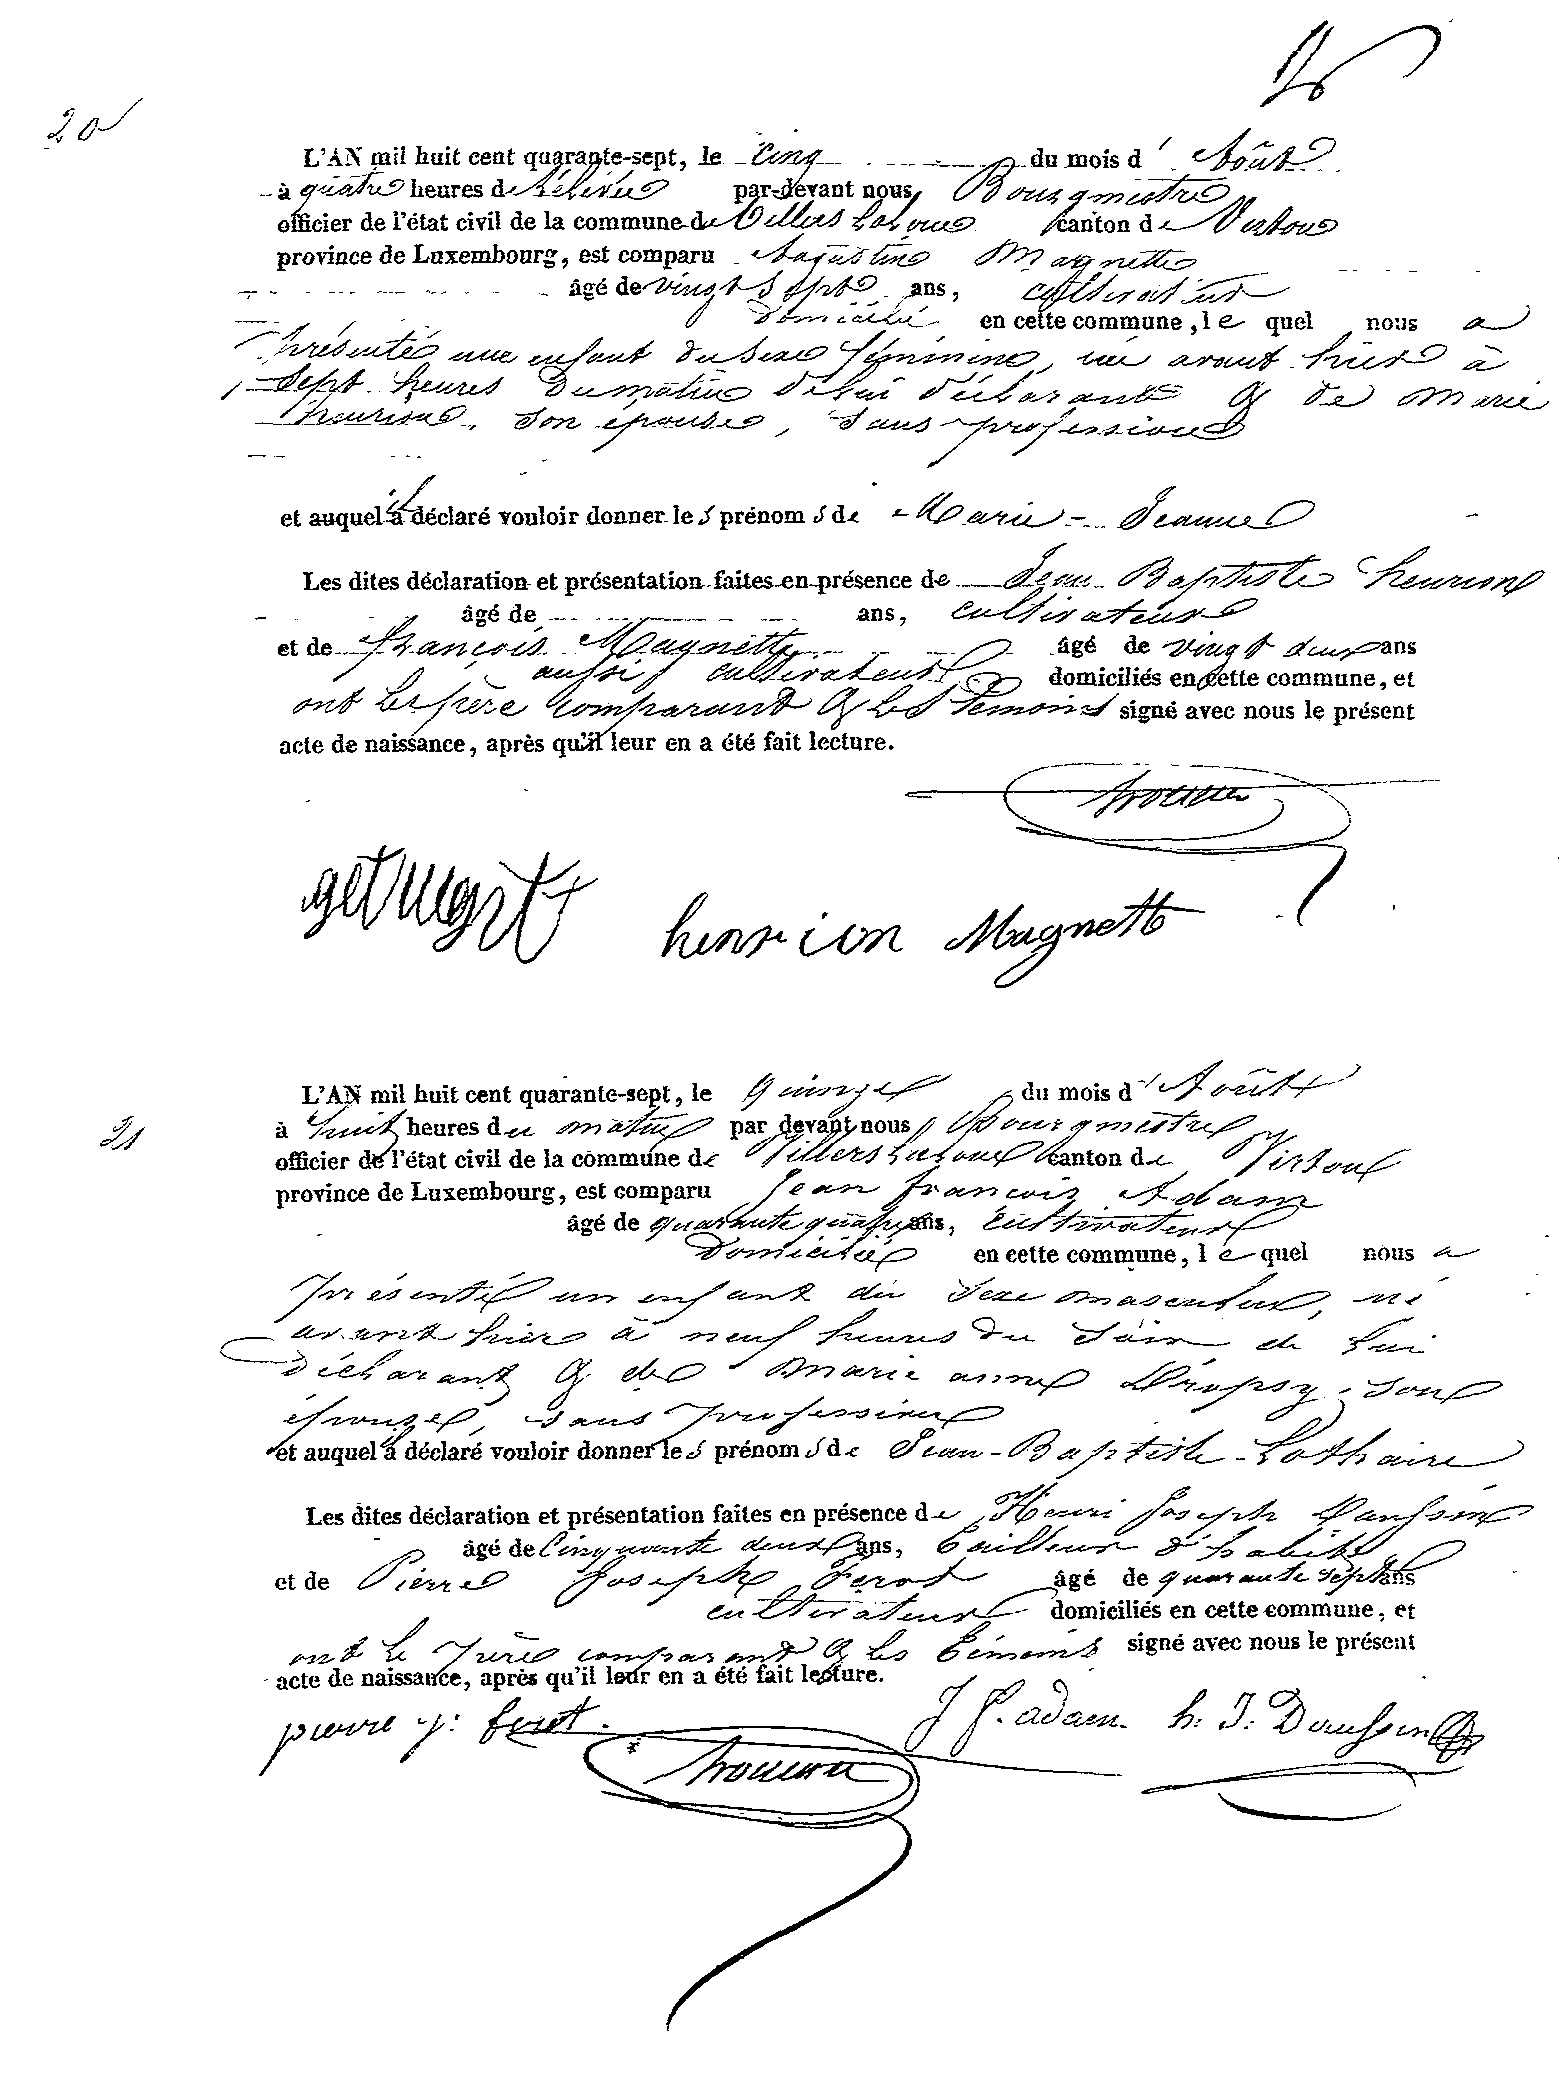 20
L'AN mil huit cent quarante-sept, le cinq du mois d'Août
à quatre heures de relevée par devant nous, Bourgmestre
officier de l'état civil de la commune de Villers La Loue canton de Virton
province de Luxembourg, est comparu Augustin Magnette
âgé de vingt sept ans, cultivateur
domicilié en cette commune, le quel nous a
présenté une enfant du sexe féminin, née avant hier à
sept heures du matin de lui déclarant & de Marie
henrion, son épouse, sans profession
et auquel il a déclaré vouloir donner les prénoms de Marie-Jeanne
Les dites déclaration et présentation faites en présence de Jean Baptiste henrion
âgé de ans, cultivateur
et de François Magnette âgé de vingt deux ans
aussi cultivateur domiciliés en cette commune, et
ont les père comparant & les témoins signé avec nous le présent
acte de naissance, après qu'il leur en a été fait lecture.
henrion Magnette
21
L'AN mil huit cent quarante-sept, le quinze du mois d'Août
à huit heures du matin par devant nous, Bourgmestre
officier de l'état civil de la commune de Villers La Loue canton de Virton
province de Luxembourg, est comparu Jean françois Adam
âgé de quarante quatre ans, cultivateur
Domicilié en cette commune, le quel nous a
présenté un enfant du sexe masculin, né
avant hier à neuf heures du soir de lui
déclarant & de Marie anne Dropsy, son
épouse, sans profession
et auquel il a déclaré vouloir donner les prénoms de Jean-Baptiste-Lothaire
Les dites déclaration et présentation faites en présence de Henri Joseph Daussin
âgé de cinquante deux ans, tailleur d'habits
et de Pierre Joseph feret âgé de quarante sept ans
cultivateur domiciliés en cette commune, et
ont le père comparant & les témoins signé avec nous le présent
acte de naissance, après qu'il leur en a été fait lecture.
pierre j: feret. J f. adam. h: J: Daussin